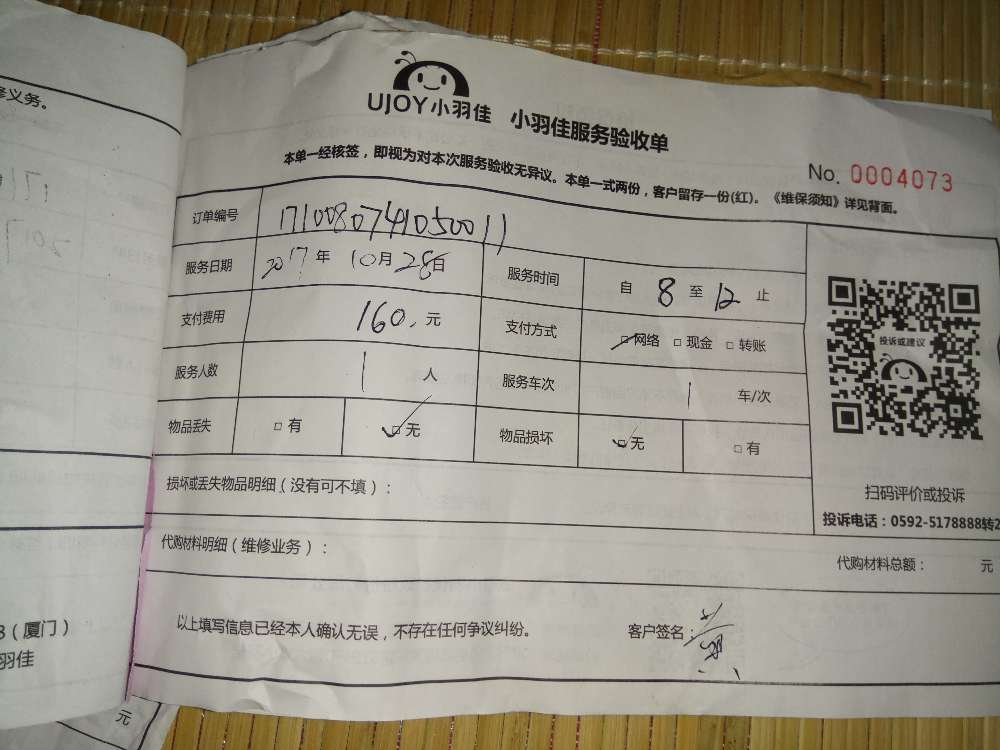 修义务。
UJOY小羽佳 小羽佳服务验收单
本单一经核签，即视为对本次服务验收无异议。本单一式两份，客户留存一份(红)。《维保须知》详见背面。
No. 0004073
订单编号 1710080741050011
服务日期 2017年 10月 28日 服务时间 自 8 至 12 止
支付费用 160. 元 支付方式 □网络 □现金 □转账
服务人数 1 人 服务车次 1 车/次
物品丢失 □有 □无 物品损坏 □无 □有
投诉或建议
扫码评价或投诉
投诉电话：0592-5178888转2
损坏或丢失物品明细（没有可不填）：
代购材料明细（维修业务）： 代购材料总额： 元
以上填写信息已经本人确认无误，不存在任何争议纠纷。 客户签名：
（厦门）
羽佳
元